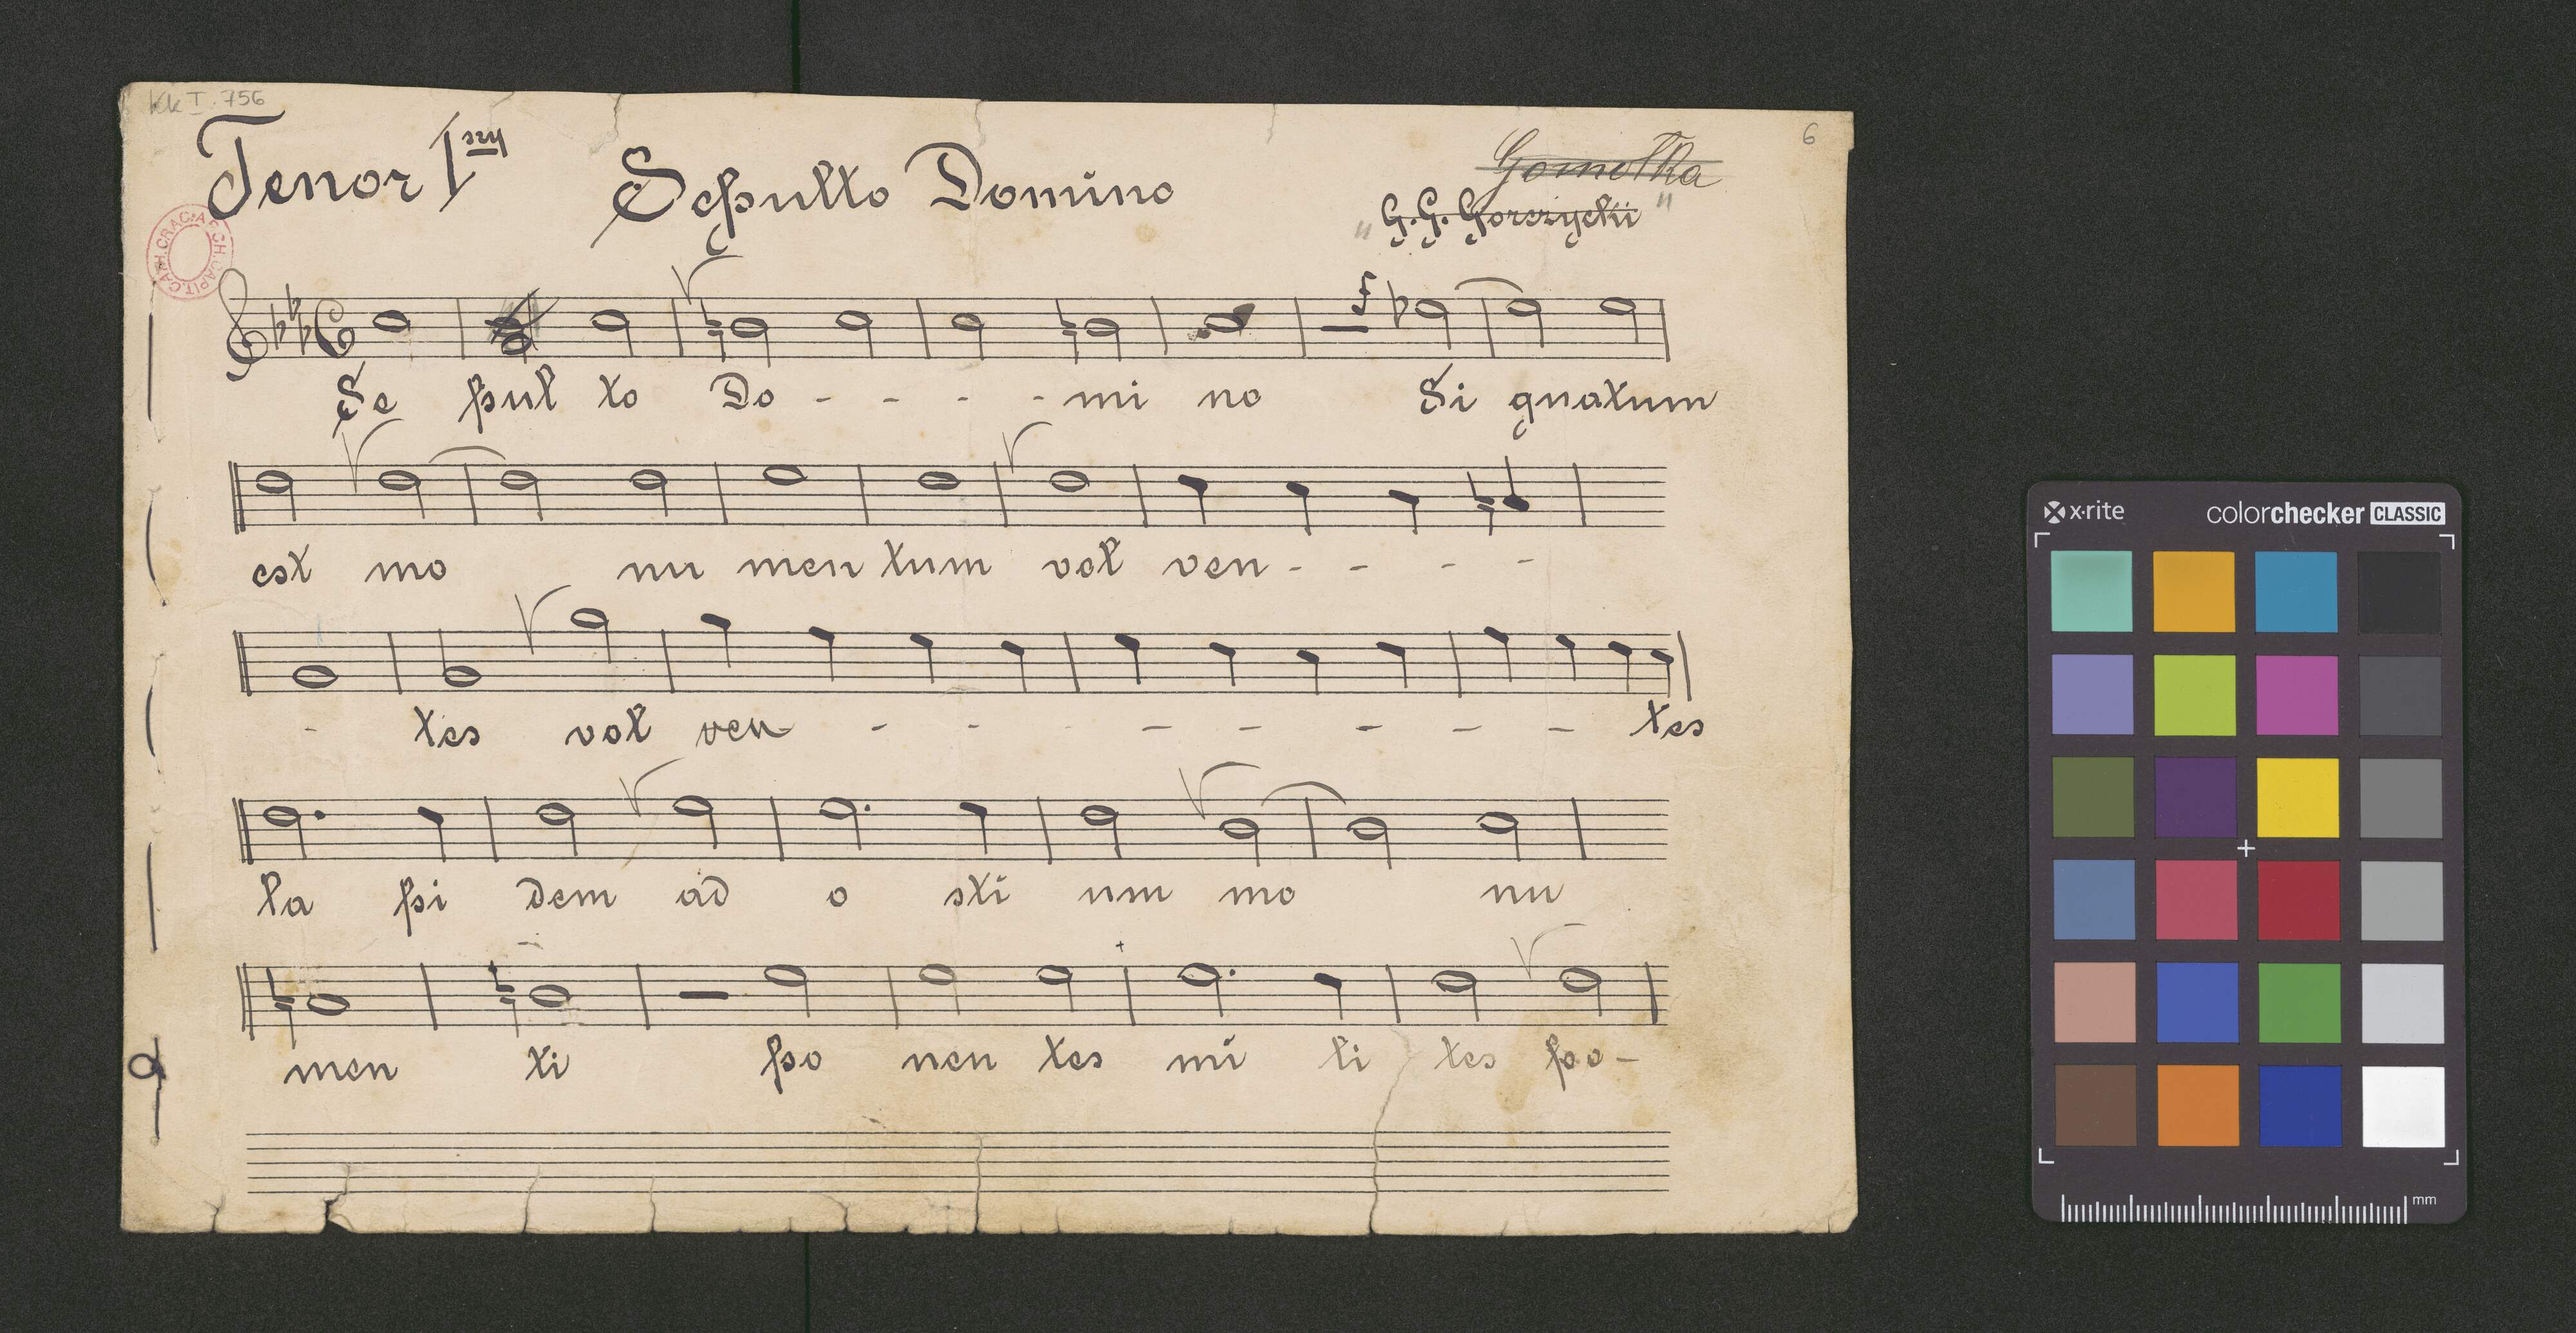 KK I. 756
6
Tenor 1szy
Sepulto Domino
Gomółka
"G.G. Gorczycki"
Se pul to Do - - - - mi no Si gnatum
est mo nu men tum vol ven - - - -
- tes vol ven - - - - - - - - tes
la pi dem ad o sti um mo nu
men ti po nen tes mi li tes po-
x·rite
colorchecker CLASSIC
mm